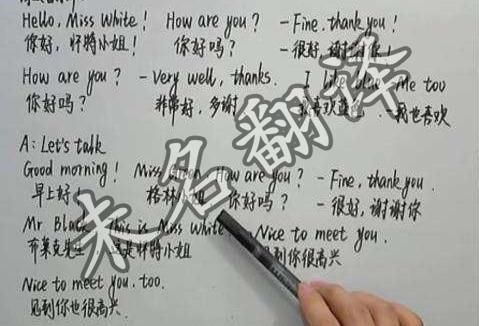 Hello, Miss White! How are you? - Fine, thank you!
你好，怀特小姐！ 你好吗？ - 很好，谢谢你！
How are you? - Very well, thanks. I like blue - Me too
你好吗？ 非常好，多谢 我喜欢蓝色 - 我也喜欢
A: Let's talk
Good morning! Miss Green, How are you? - Fine, thank you.
早上好！ 格林小姐 你好吗？ - 很好，谢谢你
Mr Black, This is Miss White Nice to meet you.
布莱克先生 这是怀特小姐 见到你很高兴
Nice to meet you, too.
见到你也很高兴
未名翻译